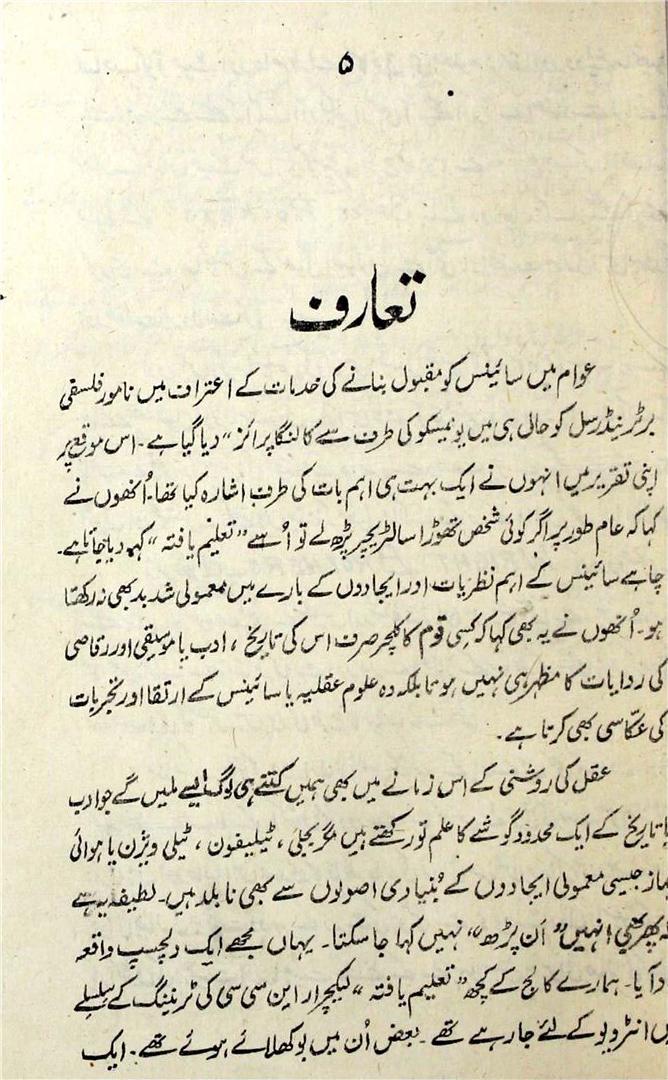 ۵
تعارف
عوام میں سائینس کو مقبول بنانے کی خدمات کے اعتراف میں نامور فلسفی
برٹرینڈرسل کو حال ہی میں یونیسکو کی طرف سے کالنگا پرائز” دیا گیا ہے۔ اس موقع پر
اپنی تقریر میں انہوں نے ایک بہت ہی اہم بات کی طرف اشارہ کیا تھا۔ اُنھوں نے
کہا کہ عام طور پر اگر کوئی شخص تھوڑا سا لٹریچر پڑھ لے تو اُسے ”تعلیم یافتہ“ کہہ دیا جاتا ہے۔
چاہے سائینس کے اہم نظریات اور ایجادوں کے بارے میں معمولی شد بد بھی نہ رکھتا
ہو۔ اُنھوں نے یہ بھی کہا کہ کسی قوم کا کلچر صرف اس کی تاریخ ، ادب یا موسیقی اور رقاصی
کی روایات کا مظہر ہی نہیں ہوتا بلکہ وہ علوم عقلیہ یا سائینس کے ارتقا اور تجربات
کی عکّاسی بھی کرتا ہے۔
عقل کی روشنی کے اس زمانے میں بھی ہمیں کتنے ہی لوگ ایسے ملیں گے جو ادب
یا تاریخ کے ایک محدود گوشے کا علم تو رکھتے ہیں مگر بجلی ، ٹیلیفون ، ٹیلی ویژن یا ہوائی
جیسی معمولی ایجادوں کے بُنیادی اصولوں سے بھی نا بلد ہیں۔ لطیفہ یہ ہے
پھر بھی انہیں ”اَن پڑھ“ نہیں کہا جا سکتا۔ یہاں مجھے ایک دلچسپ واقعہ
آیا۔ ہمارے کالج کے کچھ ”تعلیم یافتہ“ لیکچرار این سی سی کی ٹریننگ کے سلسلے
انٹرویو کے لئے جا رہے تھے ۔ بعض اُن میں بوکھلائے ہوئے تھے ۔ ایک